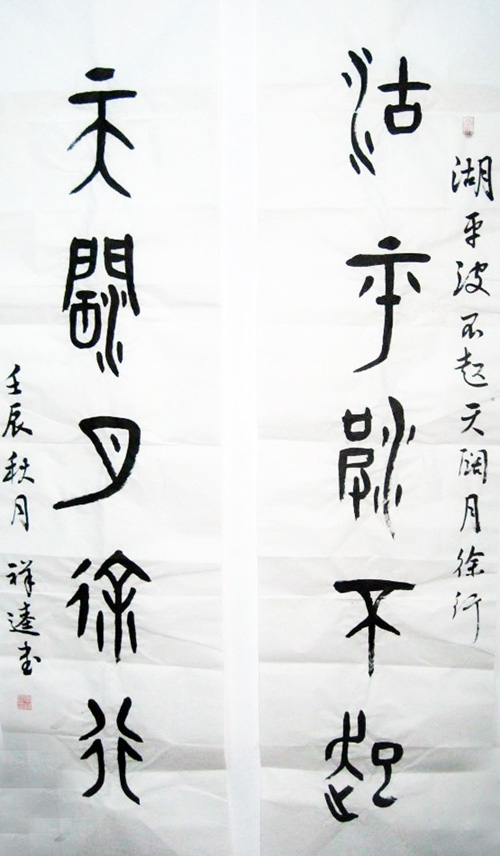 湖平波不起天阔月徐行
湖平波不起
天闊月徐行
壬辰秋月祥逵书